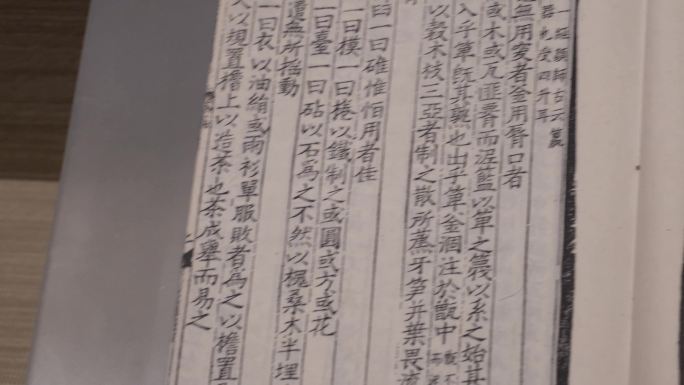 一經調師古云䈱
器九受四升耳
無用突者釜用脣口者
或木或瓦匪𦝫而泥籃以箄之篾以系之始其
入乎箄既其熟也出乎箄釜涸注於甑中
以榖木枝三亞者制之散所蒸牙笋并葉畏流
臼一曰碓惟恒用者佳
一曰模一曰棬以鐵制之或圓或方或花
一曰臺一曰砧以石為之不然以槐桑木半埋
遣無所搖動
一曰衣以油絹或雨衫單服敗者為之以檐置
又以規置檐上以造茶也茶成舉而易之